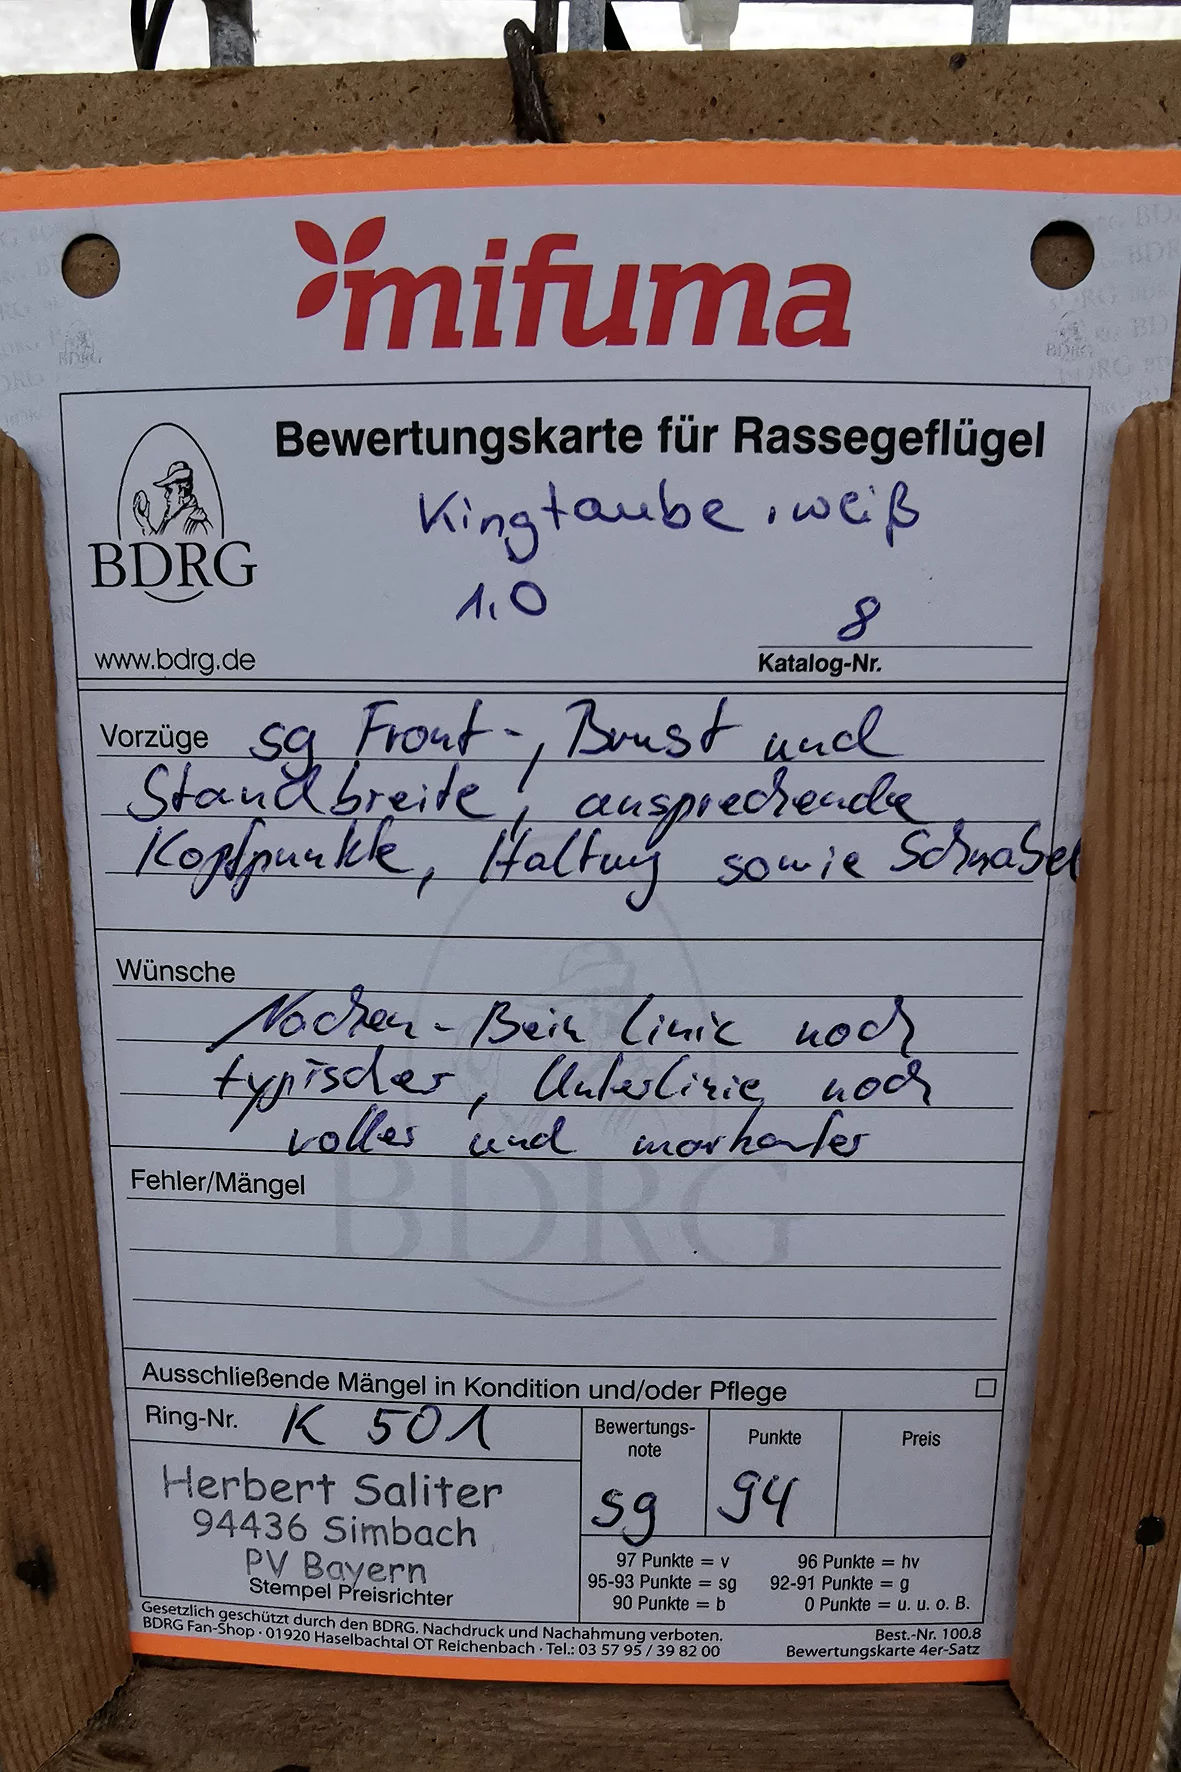 mifuma
Bewertungskarte für Rassegeflügel
BDRG
www.bdrg.de
Kingtaube, weiß
1,0
8
Katalog-Nr.
Vorzüge sg Front-, Brust und
Standbreite, ansprechende
Kopfpunkte, Haltung sowie Schnabel
Wünsche
Nacken-Bein linie noch
typischer, Unterlinie noch
voller und markanter
Fehler/Mängel
BDRG
Ausschließende Mängel in Kondition und/oder Pflege
Ring-Nr. K 501
Herbert Saliter
94436 Simbach
PV Bayern
Stempel Preisrichter
Bewertungs-
note
sg
Punkte
94
Preis
97 Punkte = v 96 Punkte = hv
95-93 Punkte = sg 92-91 Punkte = g
90 Punkte = b 0 Punkte = u. u. o. B.
Gesetzlich geschützt durch den BDRG. Nachdruck und Nachahmung verboten.
BDRG Fan-Shop · 01920 Haselbachtal OT Reichenbach · Tel.: 03 57 95 / 39 82 00
Best.-Nr. 100.8
Bewertungskarte 4er-Satz